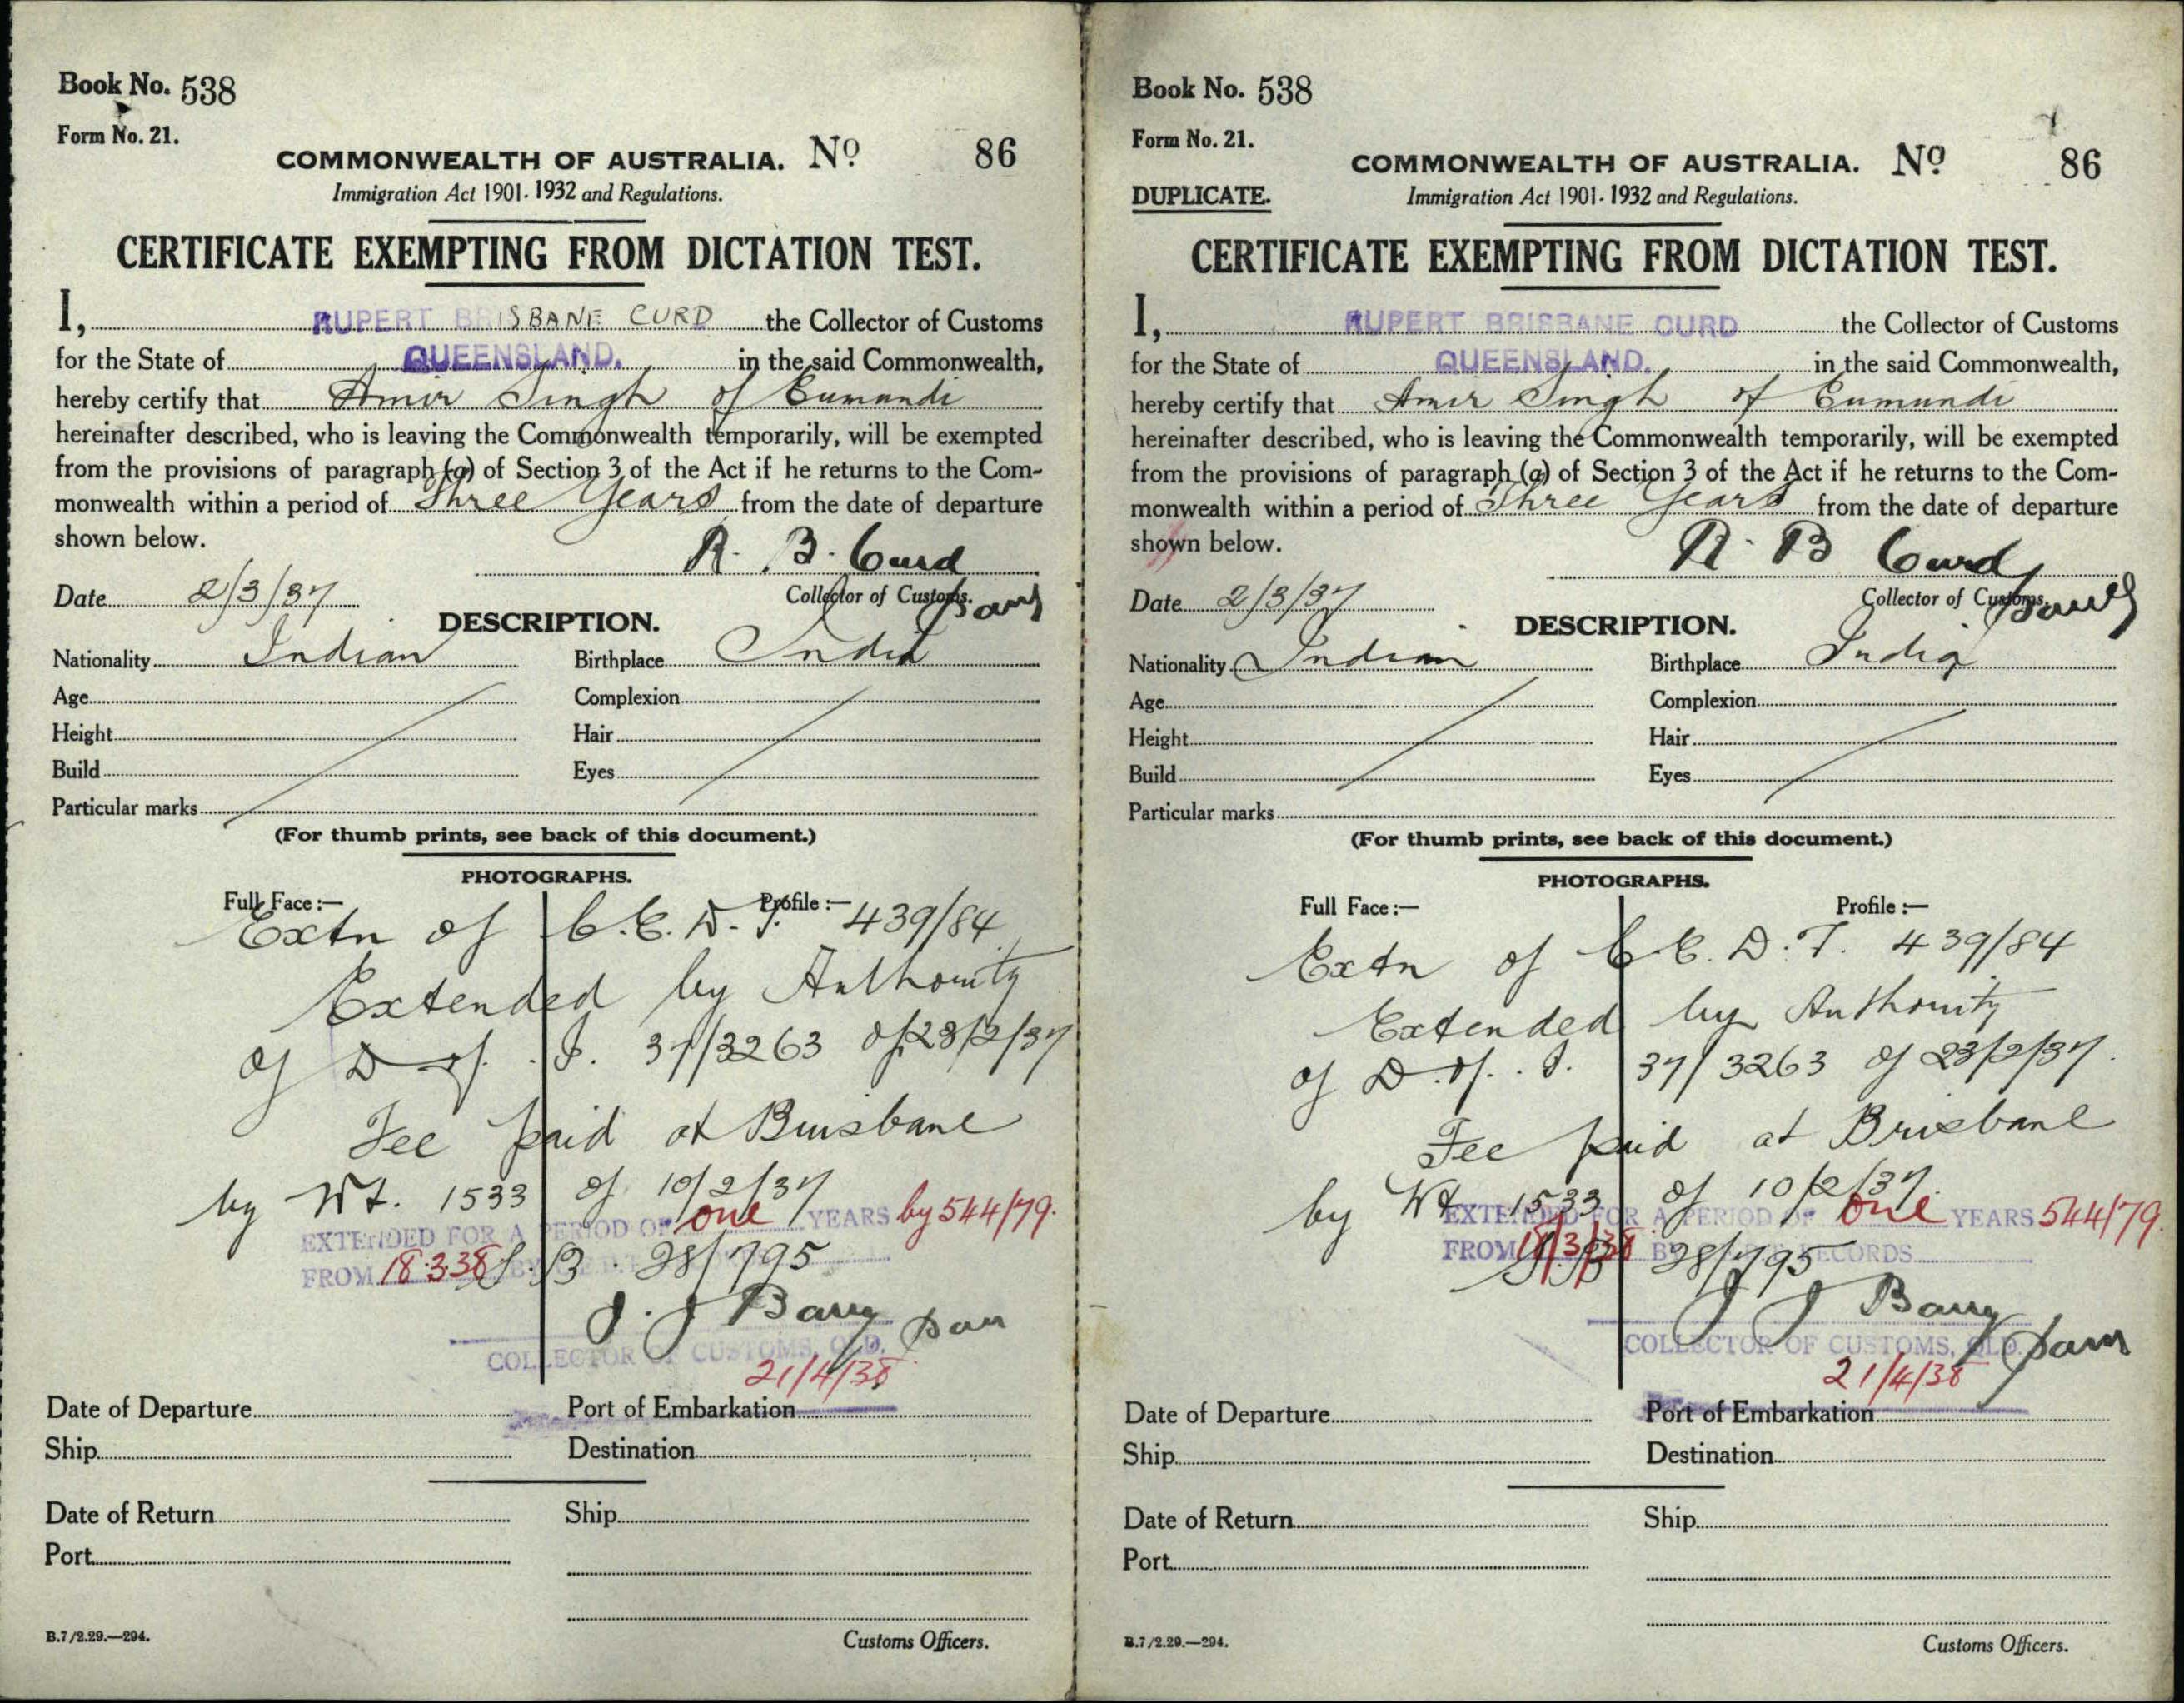 Book No. 538
Form No. 21.
COMMONWEALTH OF AUSTRALIA. No 86
Immigration Act 1901-1932 and Regulations.
CERTIFICATE EXEMPTING FROM DICTATION TEST.
I, RUPERT BRISBANE CURD the Collector of Customs
for the State of QUEENSLAND. in the said Commonwealth,
hereby certify that Amir Singh of Eumundi
hereinafter described, who is leaving the Commonwealth temporarily, will be exempted
from the provisions of paragraph (a) of Section 3 of the Act if he returns to the Com-
monwealth within a period of Three Years from the date of departure
shown below.
R. B. Curd
Date 2/3/37 Collector of Customs.
DESCRIPTION.
Nationality Indian Birthplace India
Age Complexion
Height Hair
Build Eyes
Particular marks
(For thumb prints, see back of this document.)
PHOTOGRAPHS.
Full Face:— Profile:—
Extn of C.E.D.T. 439/84
Extended by Authority
of D of I. 37/3263 of 23/2/37
Fee paid at Brisbane
by Wt. 1533 of 10/2/37
EXTENDED FOR A PERIOD OF one YEARS by 544/79.
FROM 18.3.38 B 28/795
J. J. Barry
COLLECTOR OF CUSTOMS, QLD.
21/4/38
Date of Departure Port of Embarkation
Ship Destination
Date of Return Ship
Port
B.7/2.29.—294. Customs Officers.
Book No. 538
Form No. 21.
COMMONWEALTH OF AUSTRALIA. No 86
DUPLICATE. Immigration Act 1901-1932 and Regulations.
CERTIFICATE EXEMPTING FROM DICTATION TEST.
I, RUPERT BRISBANE CURD the Collector of Customs
for the State of QUEENSLAND. in the said Commonwealth,
hereby certify that Amir Singh of Eumundi
hereinafter described, who is leaving the Commonwealth temporarily, will be exempted
from the provisions of paragraph (a) of Section 3 of the Act if he returns to the Com-
monwealth within a period of Three Years from the date of departure
shown below.
R B Curd
Date 2/3/37 Collector of Customs.
DESCRIPTION.
Nationality Indian Birthplace India
Age Complexion
Height Hair
Build Eyes
Particular marks
(For thumb prints, see back of this document.)
PHOTOGRAPHS.
Full Face:— Profile:—
Extn of C.E.D.T. 439/84
Extended by Authority
of D. of. I. 37/3263 of 23/2/37.
Fee paid at Brisbane
by Wt 1533 of 10/2/37.
EXTENDED FOR A PERIOD OF one YEARS 544/79
FROM 18/3/38 28/795 RECORDS
J J Barry
COLLECTOR OF CUSTOMS, QLD.
21/4/38
Date of Departure Port of Embarkation
Ship Destination
Date of Return Ship
Port
B.7/2.29.—294. Customs Officers.